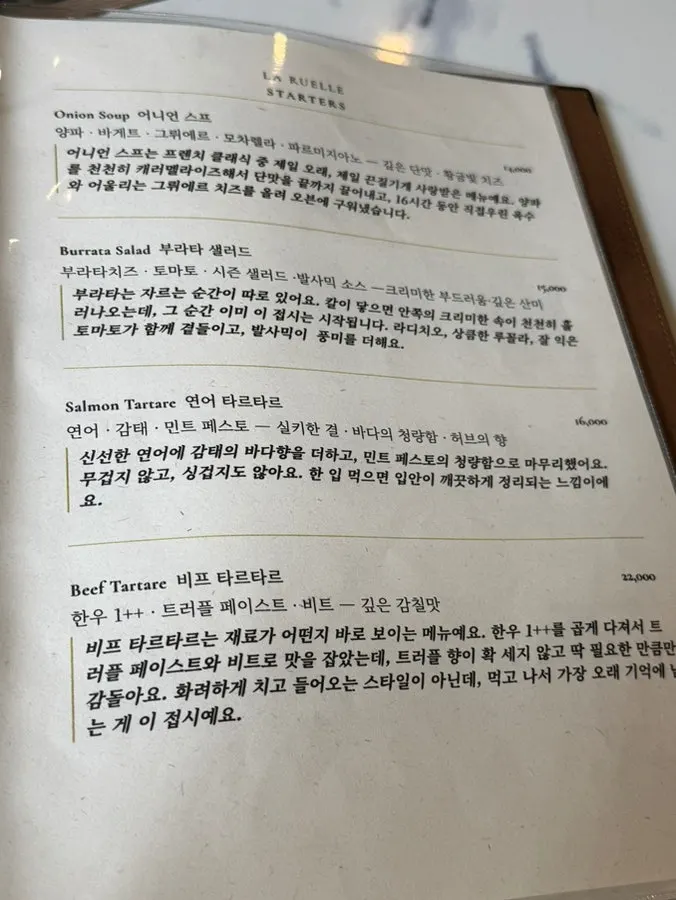 LA RUELLE
STARTERS
Onion Soup 어니언 스프
양파 · 바게트 · 그뤼에르 · 모차렐라 · 파르미지아노 — 깊은 단맛 · 황금빛 치즈
14,000
어니언 스프는 프렌치 클래식 중 제일 오래, 제일 끈질기게 사랑받은 메뉴예요. 양파
를 천천히 캐러멜라이즈해서 단맛을 끝까지 끌어내고, 16시간 동안 직접우린 육수
와 어울리는 그뤼에르 치즈를 올려 오븐에 구워냈습니다.
Burrata Salad 부라타 샐러드
부라타치즈 · 토마토 · 시즌 샐러드 ·발사믹 소스 —크리미한 부드러움·깊은 산미
15,000
부라타는 자르는 순간이 따로 있어요. 칼이 닿으면 안쪽의 크리미한 속이 천천히 흘
러나오는데, 그 순간 이미 이 접시는 시작됩니다. 라디치오, 상큼한 루꼴라, 잘 익은
토마토가 함께 곁들이고, 발사믹이 풍미를 더해요.
Salmon Tartare 연어 타르타르
16,000
연어 · 감태 · 민트 페스토 — 실키한 결 · 바다의 청량함 · 허브의 향
신선한 연어에 감태의 바다향을 더하고, 민트 페스토의 청량함으로 마무리했어요.
무겁지 않고, 싱겁지도 않아요. 한 입 먹으면 입안이 깨끗하게 정리되는 느낌이에
요.
Beef Tartare 비프 타르타르
22,000
한우 1++ · 트러플 페이스트 · 비트 — 깊은 감칠맛
비프 타르타르는 재료가 어떤지 바로 보이는 메뉴예요. 한우 1++를 곱게 다져서 트
러플 페이스트와 비트로 맛을 잡았는데, 트러플 향이 확 세지 않고 딱 필요한 만큼만
감돌아요. 화려하게 치고 들어오는 스타일이 아닌데, 먹고 나서 가장 오래 기억에
는 게 이 접시예요.